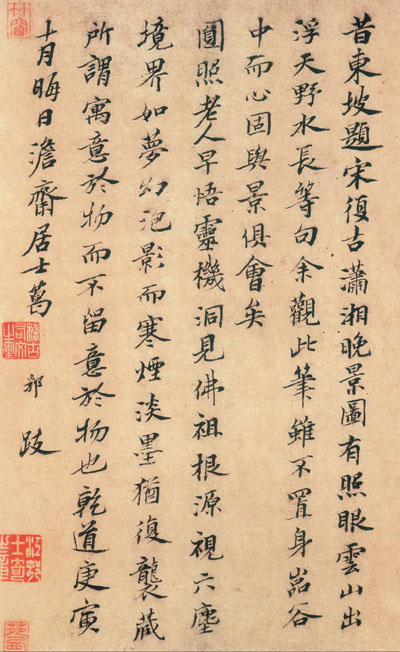 昔東坡題宋復古瀟湘晚景圖有照眼雲山出
浮天野水長等句余觀此筆雖不置身嵓谷
中而心固與景俱會矣
圓照老人早悟靈機洞見佛祖根源視六塵
境界如夢幻泡影而寒煙淡墨猶復襲藏
所謂寓意於物而不留意於物也乾道庚寅
十月晦日澹齋居士葛
郯 跋
竹窗
江邨士奇之章